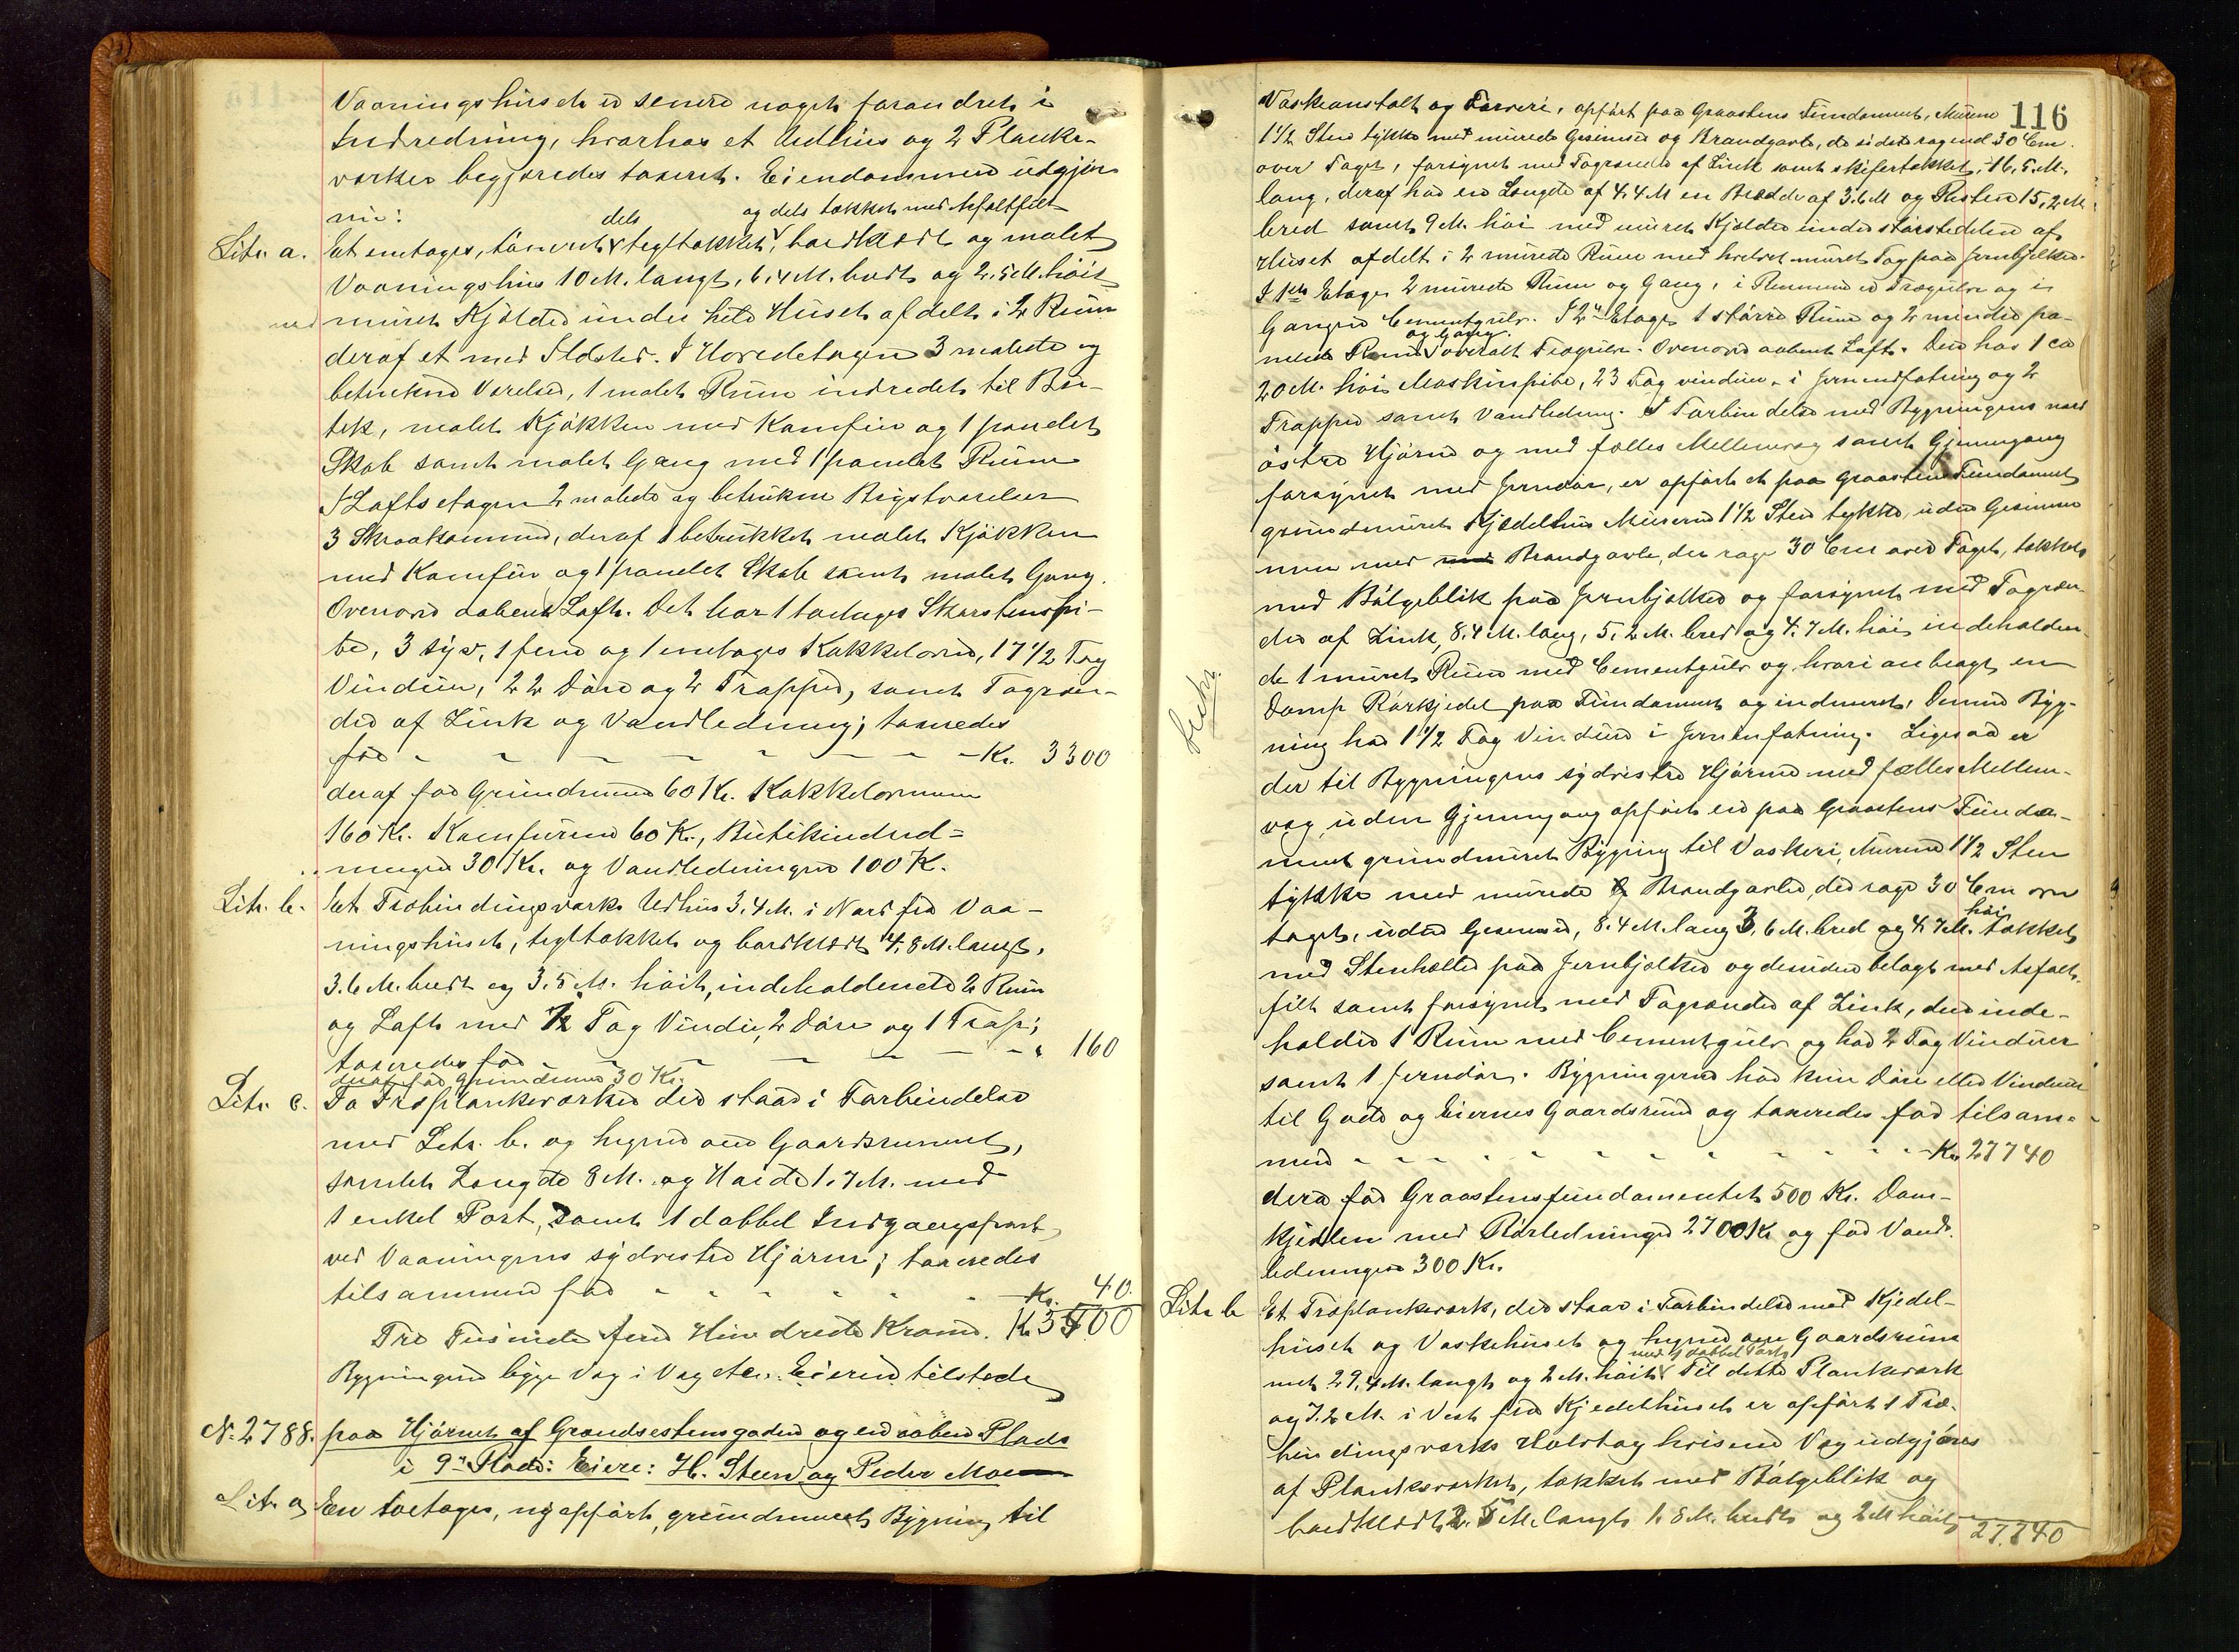 Vaaningshuset er senere noget forandret i
Indredning, hvorhos et Udhus og 2 Planke-
værker begjæredes taxeret. Eiendommen udgjør
nu:
dels og dels tækket med Asfaltfilt
Litr. a. Et enetages, tømret, tegltækket, bordklædt og malet
Vaaningshus 10 M. langt, 6,4 M. bredt og 2,5 M. høit
med muret Kjælder under hele Huset afdelt i 2 Rum
deraf et med Ildsted. I Hovedetagen 3 malede og
betrukne Værelser, 1 malet Rum indredet til Bu-
tik, malet Kjøkken med Komfur og 1 panelet
Skab samt malet Gang med 1 panelet Rum
I Loftsetagen 2 malede og betrukne Kvistværelser
3 Skraakammer, deraf 1 betrukket malet Kjøkken
med Komfur og 1 panelet Skab samt malet Gang.
Ovenover aabent Loft. Det har 1 toetages Skorstenspi-
be, 3 syv, 1 fem og 1 enetages Kakkelovne, 17 1/2 Fag
Vinduer, 22 Døre og 2 Trapper, samt Tagren-
der af Zink og Vandledning; taxeredes
for - - - - - - - - Kr. 3300
deraf for Grundmuren 60 Kr. Kakkelovnene
160 Kr. Komfurene 60 Kr., Butikindred-
ningen 30 Kr. og Vandledningen 100 K.
Litr. b. Et Træbindingsværks Udhus 3,4 M. i Nord fra Vaa-
ningshuset, tegltækket og bordklædt 4,8 M. langt,
3.6 M. bredt og 3.5 M. høit, indeholdende 2 Rum
og Loft med 1/2 Fag Vindu, 2 Døre og 1 Trap;
taxeredes for - - - - - - - " 160
deraf for Grundmuren 30 Kr.
Litr. c. To Træplankeværker der staar i Forbindelse
med Litr. b. og hegner om Gaardsrummet,
samlet Længde 8 M. og Høide 1.7 M. med
1 enkel Port, samt 1 dobbel Indgangsport
ved Vaaningens sydvestre Hjørne; taxeredes
tilsammen for - - - - - - - Kr. 40.
Tre Tusinde fem Hundrede Kroner. Kr 3500
Bygningerne ligge Væg i Væg etc. Eieren tilstede
N. 2788. paa Hjørnet af Grændsestensgaden og en aaben Plads
i 9de Rode: Eiere: H. Steen og Peder Moe
Litr. a, En toetages, ny opført, grundmuret Bygning til
116
Vaskeanstalt og Farveri, opført paa Graastens Fundament, Murene
1 1/2 Sten tykke med murede Gesimser og Brandgavle, de sidste ragend 30 Cm.
over Taget, forsynet med Tagrender af Zink samt skifertækket, 16,5 M.
lang, deraf har en Længde af 4,4 M en Bredde af 3.6 M og Resten 15,2 M.
bred samt 9 M. høi med muret Kjælder under størstedelen af
Huset afdelt i 2 murede Rum med hvelvet muret Tag paa Jernbjelker.
I 1ste Etage 2 murede Rum og Gang, i Rummene er Trægulv og i
Gangen Cementgulv. I 2den Etage 1 større Rum og 2 mindre pa-
og Gang.
nelede Rum overalt Trægulv. Ovenover aabent Loft. Den har 1 ca
20 M. høi Maskinpibe, 23 Fag vinduer i Jernindfatning og 2
Trapper samt Vandledning. I Forbindelse med Bygningens nord
østre Hjørne og med fælles Mellemvæg samt Gjennemgang
forsynet med Jerndør, er opført et paa Graastens Fundament
grundmuret Kjedelhus Murene 1 1/2 Sten tykke, uden Gesimser
men med Brandgavle, der rage 30 Cm over Taget, tækket
med Bølgeblik paa Jernbjelker og forsynet med Tagren-
der af Zink, 8.4 M. lang, 5,2 M. bred og 4.7 M. høi, indeholden-
de 1 muret Rum med Cementgulv og hvori anbragt en
Damp Rørkjedel paa Fundament og indmuret. Denne Byg-
ning har 1 1/2 Fag Vinduer i Jerninfatning. Ligesaa er
der til Bygningens sydvestre Hjørne med fælles Mellem-
væg uden Gjennemgang opført en paa Graastens Funda-
ment grundmuret Bygning til Vaskeri, Murene 1 1/2 Sten
tykke med murede Brandgavle, der rage 30 Cm over
høi
taget, uden Gesimser, 8.4 M. lang 3,6 M. bred og 4.7 M. tækket
med Stenheller paa Jernbjelker og desuden belagt med Asfalt-
filt samt forsynet med Tagrender af Zink, den inde-
holder 1 Rum med Cementgulv og har 2 Fag Vinduer
samt 1 Jerndør. Bygningerne har kun Døre eller Vinduer
til Gade og Eiernes Gaardsrum og taxeredes for tilsam-
men - - - - - - - - - - Kr. 27740
deraf for Graastensfundamentet 500 Kr. Dam-
kjedlen med Rørledninger 2700 Kr og for Vand-
ledningen 300 Kr.
Litr. b Et Træplankeværk, der staar i Forbindelse med Kjedel-
huset og Vaskehuset og hegner om Gaardsrum
med 1 dobbel Port
met 29,4 M. langt og 2 M. høit. Til dette Plankeværk
og 7.2 M. i Vest fra Kjedelhuset er opført 1 Træ-
bindingsværks Halvtag hvis ene Væg udgjøres
af Plankeværket, tækket med Bølgeblik og
bordklædt, 2.5 M. langt 1.8 M. bredt og 2 M høit,
27.740